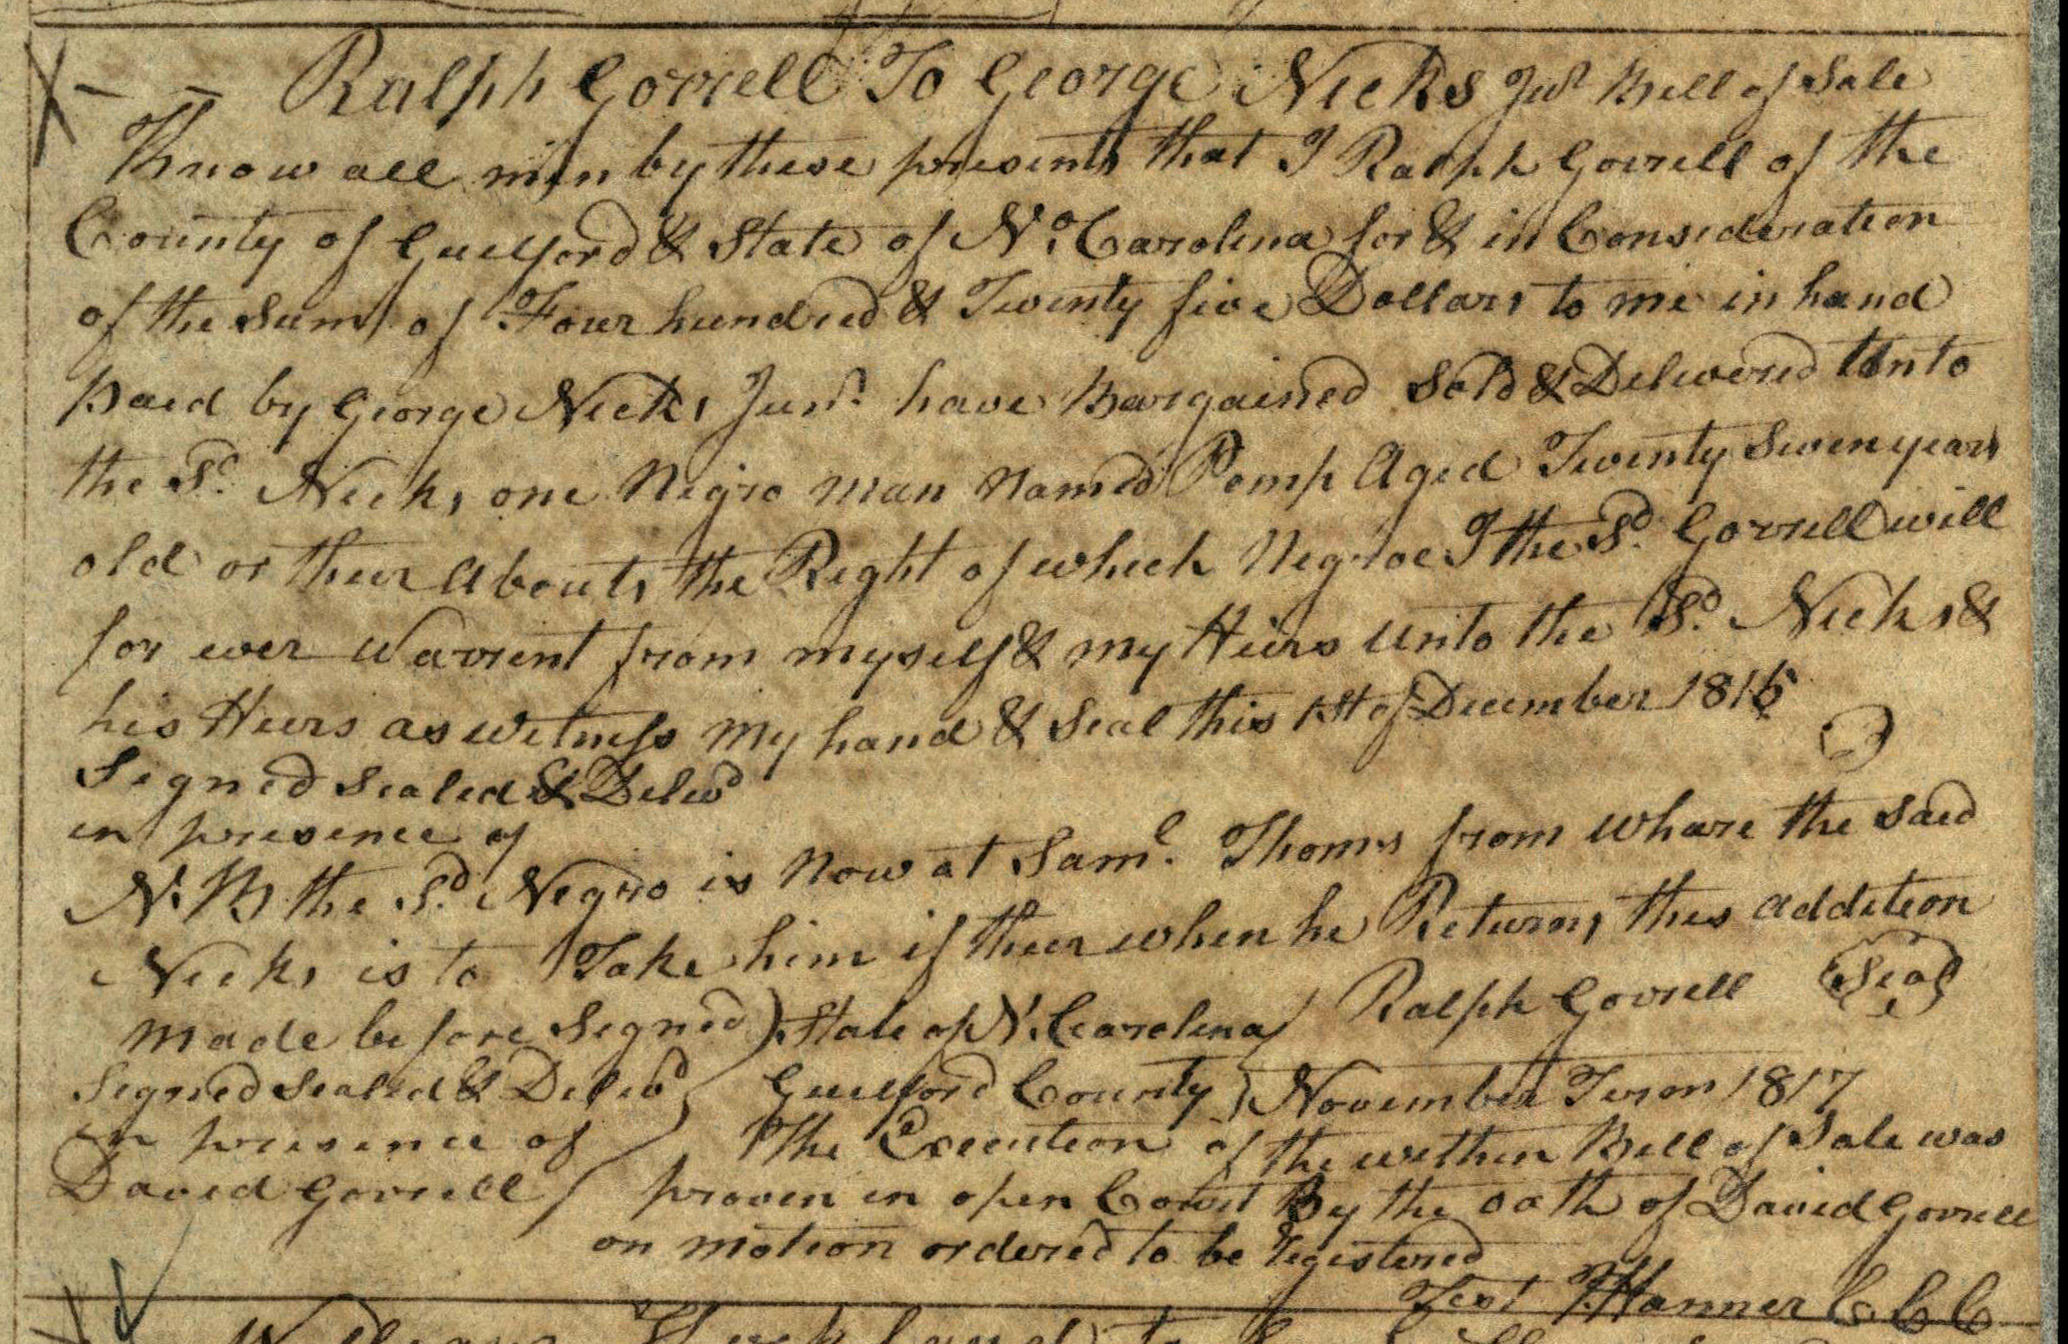 Ralph Gorrell To George Nicks Junr Bill of Sale
Know all men by these presents that I Ralph Gorrell of the
County of Guilford & State of No. Carolina for & in Consideration
of the Sum of Four hundred & Twenty five Dollars to me in hand
paid by George Nicks Junr. have Bargained Sold & Delivered Unto
the Sd. Nicks one Negro man named Pomp Aged Twenty Seven years
old or their Abouts the Right of which Negroe I the Sd. Gorrell will
for ever Warrent from myself & my Heirs unto the Sd. Nicks &
his Heirs as witness my hand & Seal this 1st of December 1816
Signed Sealed & Delivd
in presence of
N.B the Sd. Negro is now at Saml. Thoms from whare the said
Nicks is to Take him if their when he Returns this addition
made before Signed
Ralph Gorrell Seal
Signed Sealed & Delivd
in presence of
David Gorrell
State of N. Carolina
Guilford County November Term 1817
The Execution of the within Bill of Sale was
proven in open Court By the oath of David Gorrell
on motion ordered to be Registered
Test Hanner C C C